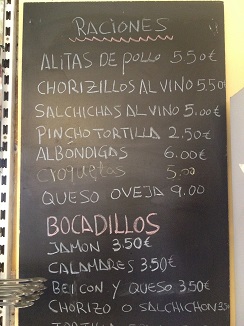 RACIONES
ALITAS DE POLLO 5.50€
CHORIZILLOS AL VINO 5.50
SALCHICHAS AL VINO 5.00€
PINCHO TORTILLA 2.50€
ALBÓNDIGAS 6.00€
CROQUETAS 5,00
QUESO OVEJA 9.00
BOCADILLOS
JAMON 3.50€
CALAMARES 3.50€
BEICON Y QUESO 3.50€
CHORIZO O SALCHICHON 3.5
TORTILLA